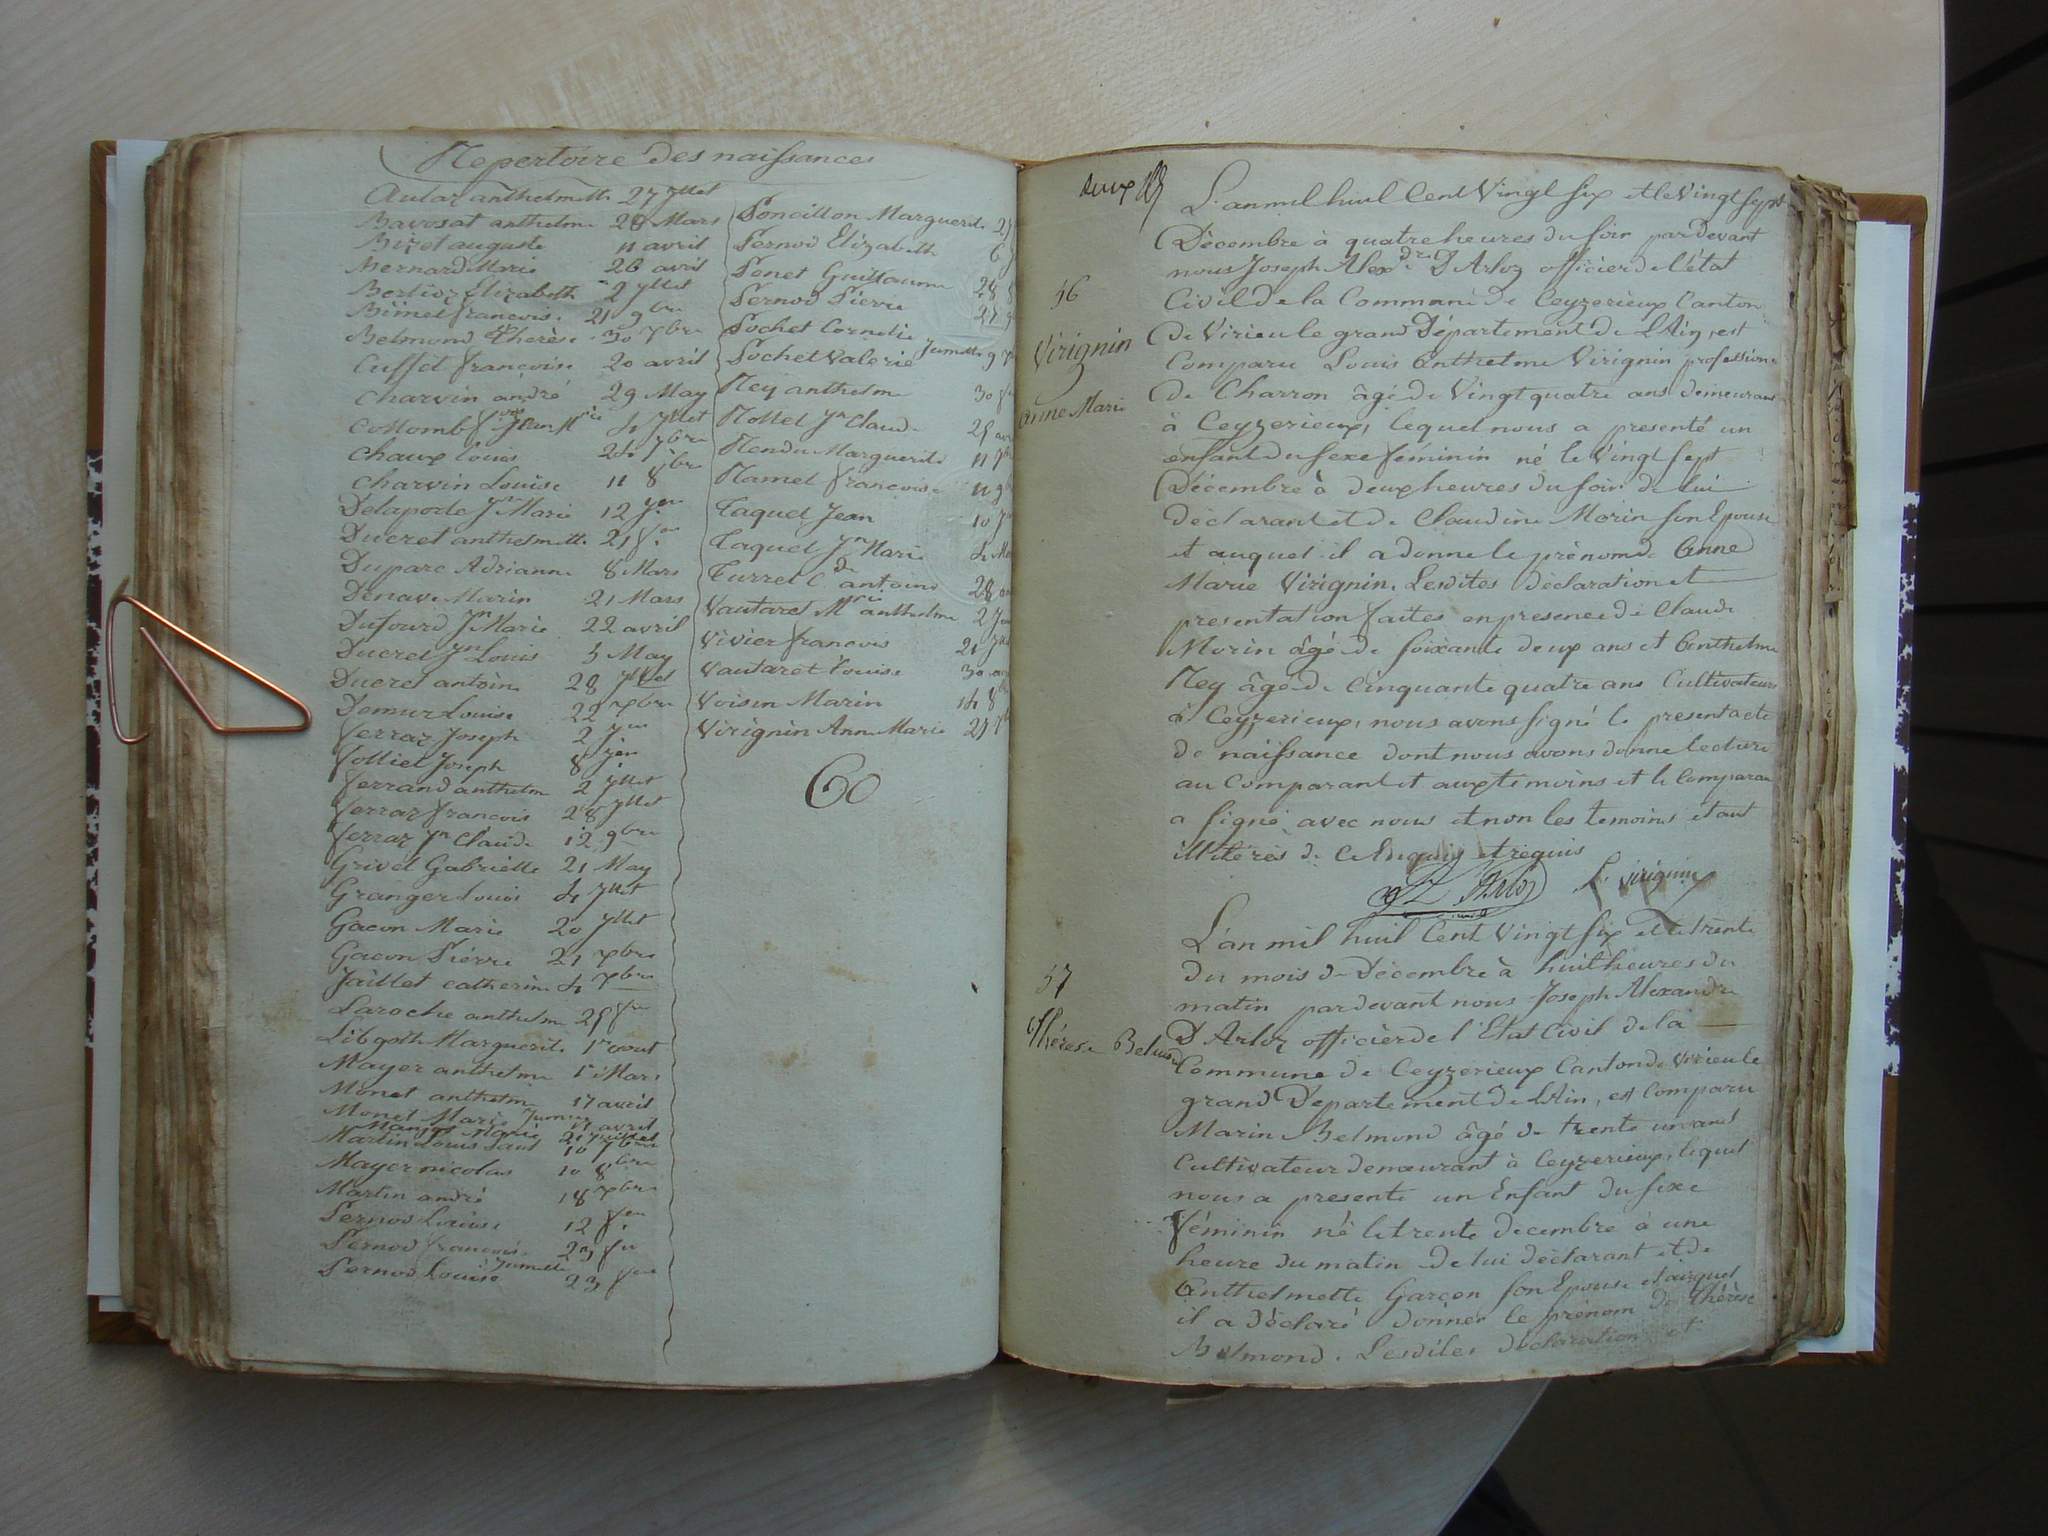 Repertoire des naissances
anthelmette 27 Jllet
Bavosat anthelme 28 Mars
Bizet auguste 11 avril
Bernard Marie 26 avril
Berlioz Elizabeth 2 Jllet
francois 21 9bre
Belmond Therèse 30
Cuffet francoise 20 avril
Charvin andré 29 May
Collomb
Chaux Louis 24 7bre
Charvin Louise 11 8bre
Delaporte Jn Marie 12
Ducret anthelmette 21
Duparc Adrianne 8 Mars
Marin 21 Mars
Dufourd Jn Marie 22 avril
Ducret Jn Louis 5 May
Ducret antoine 28 Jllet
Demur Louise 22 xbre
Ferraz Joseph 2
Folliet Joseph 8
Ferrand anthelme 2 Jllet
Ferraz francois 28 Jllet
Ferraz Jn Claude 12 9bre
Grivel Gabrielle 21 May
Granger Louis 4 Jllet
Gacon Marie 20 Jllet
Gacon Pierre 21 xbre
Jaillet catherine 4 xbre
Laroche anthelme 25
Marguerite 1er aout
Mayer anthelme 1er Mars
Monet anthelme 17 avril
Monet Marie Jumeaux 17 avril
Marie 21 Juillet
Martin Louis 10 7bre
Mayer nicolas 10 8bre
Martin andré 18 xbre
Pernod Louise 12
Pernod francoise 23
Pernod Louise Jumelle 23
Poncillon Marguerite
Pernod Elizabeth 6
Penet Guillaume 28
Pernod Pierre 27
Pochet Cornelie
Pochet Valerie Jumelle 9
Rey anthelme 30
Rollet Jn Claude
Rendu Marguerite 11
Ramel francoise 11
Taquet Jean 10
Taquet Jn Marie 4
Turret Cde antoine 28
Vautaret Mrie anthelme 2
Vivier francois 21
Vautaret Louise 30
Voisin Marin 14 8
Virignin Anne Marie
60
deux
L'an mil huit Cent Vingt six et le Vingt sept
Décembre à quatre heures du soir par devant
nous Joseph Alexdre D Arloz officier de l'état
Civil de la Commune de Ceyzerieux Canton
de Virieu le grand Département de L'Ain, est
Comparu Louis Anthelme Virignin profession
de Charron âgé de Vingt quatre ans demeurant
à Ceyzerieux, lequel nous a presenté un
enfant du sexe féminin né le Vingt sept
Décembre à deux heures du soir de lui
déclarant et de Claudine Morin son Epouse
et auquel il a donné le prénom de Anne
Marie Virignin. Lesdites déclaration et
presentation faites en presence de Claude
Morin âgé de soixante deux ans et Anthelme
Rey âgé de Cinquante quatre ans Cultivateurs
à Ceyzerieux, nous avons signé le present acte
de naissance dont nous avons donné lecture
au Comparant et aux temoins et le Comparant
a signé avec nous et non les temoins etant
illiterés de Ce Enquis et requis
L. virignin
56
Virignin
Anne Marie
L'an mil huit Cent Vingt six et le trente
du mois de Décembre à huit heures du
matin par devant nous Joseph Alexandre
D Arloz officier de l'Etat Civil de la
Commune de Ceyzerieux Canton de Virieu le
grand Département de L'Ain, est Comparu
Marin Belmond âgé de trente un ans
Cultivateur demeurant à Ceyzerieux, lequel
nous a presenté un Enfant du sexe
féminin né le trente decembre à une
heure du matin de lui déclarant et de
Anthelmette Garcon son Epouse et auquel
il a déclaré donner le prénom de Thérèse
Belmond. Lesdites déclaration et
57
Thérèse